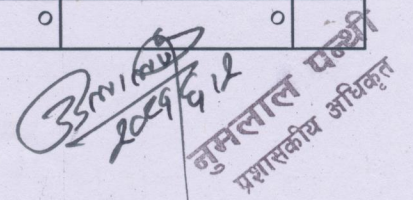 ० ०
२०८१/६/२
नुमलाल पन्थी
प्रशासकीय अधिकृत